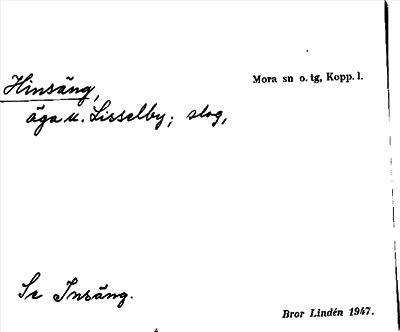 Hinsäng,
Mora sn o. tg, Kopp. l.
äga u. Lisselby; slog,
Se Insäng.
Bror Lindén 1947.